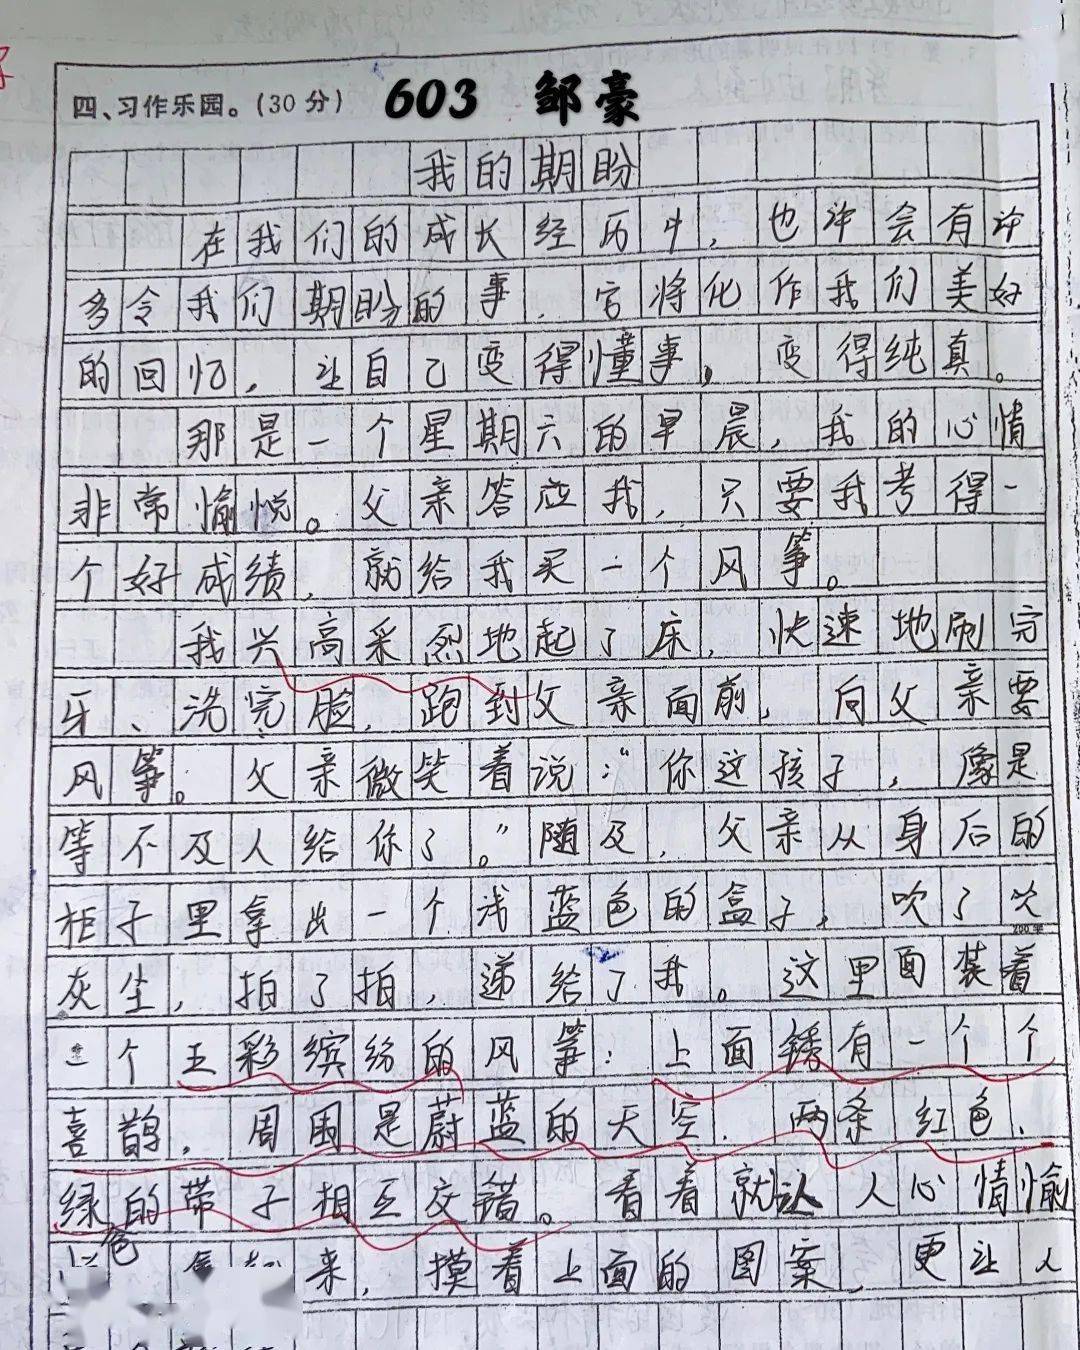 四、习作乐园。(30分) 603 邹豪
我的期盼
在我们的成长经历中，也许会有许
多令我们期盼的事，它将化作我们美好
的回忆，让自己变得懂事。变得纯真。
那是一个星期六的早晨，我的心情
非常愉悦。父亲答应我，只要我考得一
个好成绩，就给我买一个风筝。
我兴高采烈地起了床，快速地刷完
牙、洗完脸，跑到父亲面前，向父亲要
风筝。父亲微笑着说："你这孩子，像是
等不及人给你了。"随及，父亲从身后的
柜子里拿出一个浅蓝色的盒子，吹了吹
200字
灰尘，拍了拍，递给了我。这里面装着
一个五彩缤纷的风筝：上面锈有一个个
喜鹊，周围是蔚蓝的天空，两条红色、
绿色的带子相互交错。看着就让人心情愉
来，摸着上面的图案，更让人